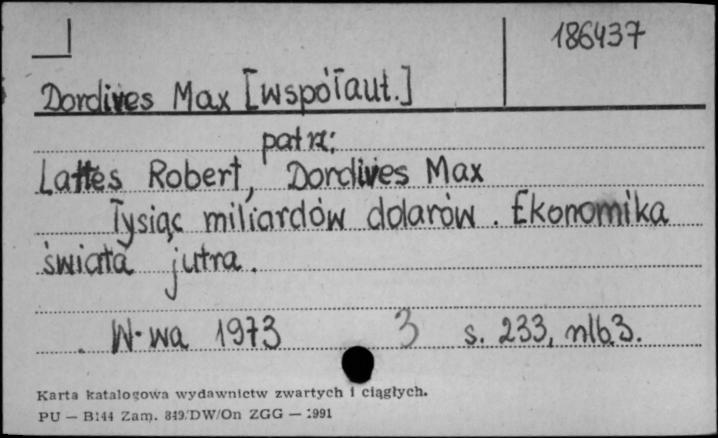 186437
Dordives Max [współaut.]
patrz:
Lattes Robert, Dordives Max
Tysiąc miliardów dolarów. Ekonomika
świata jutra.
W-wa 1973 3 s. 233, nlb 3.
Karta katalogowa wydawnictw zwartych i ciągłych.
PU — B144 Zam. 849/DW/On ZGG — 1991